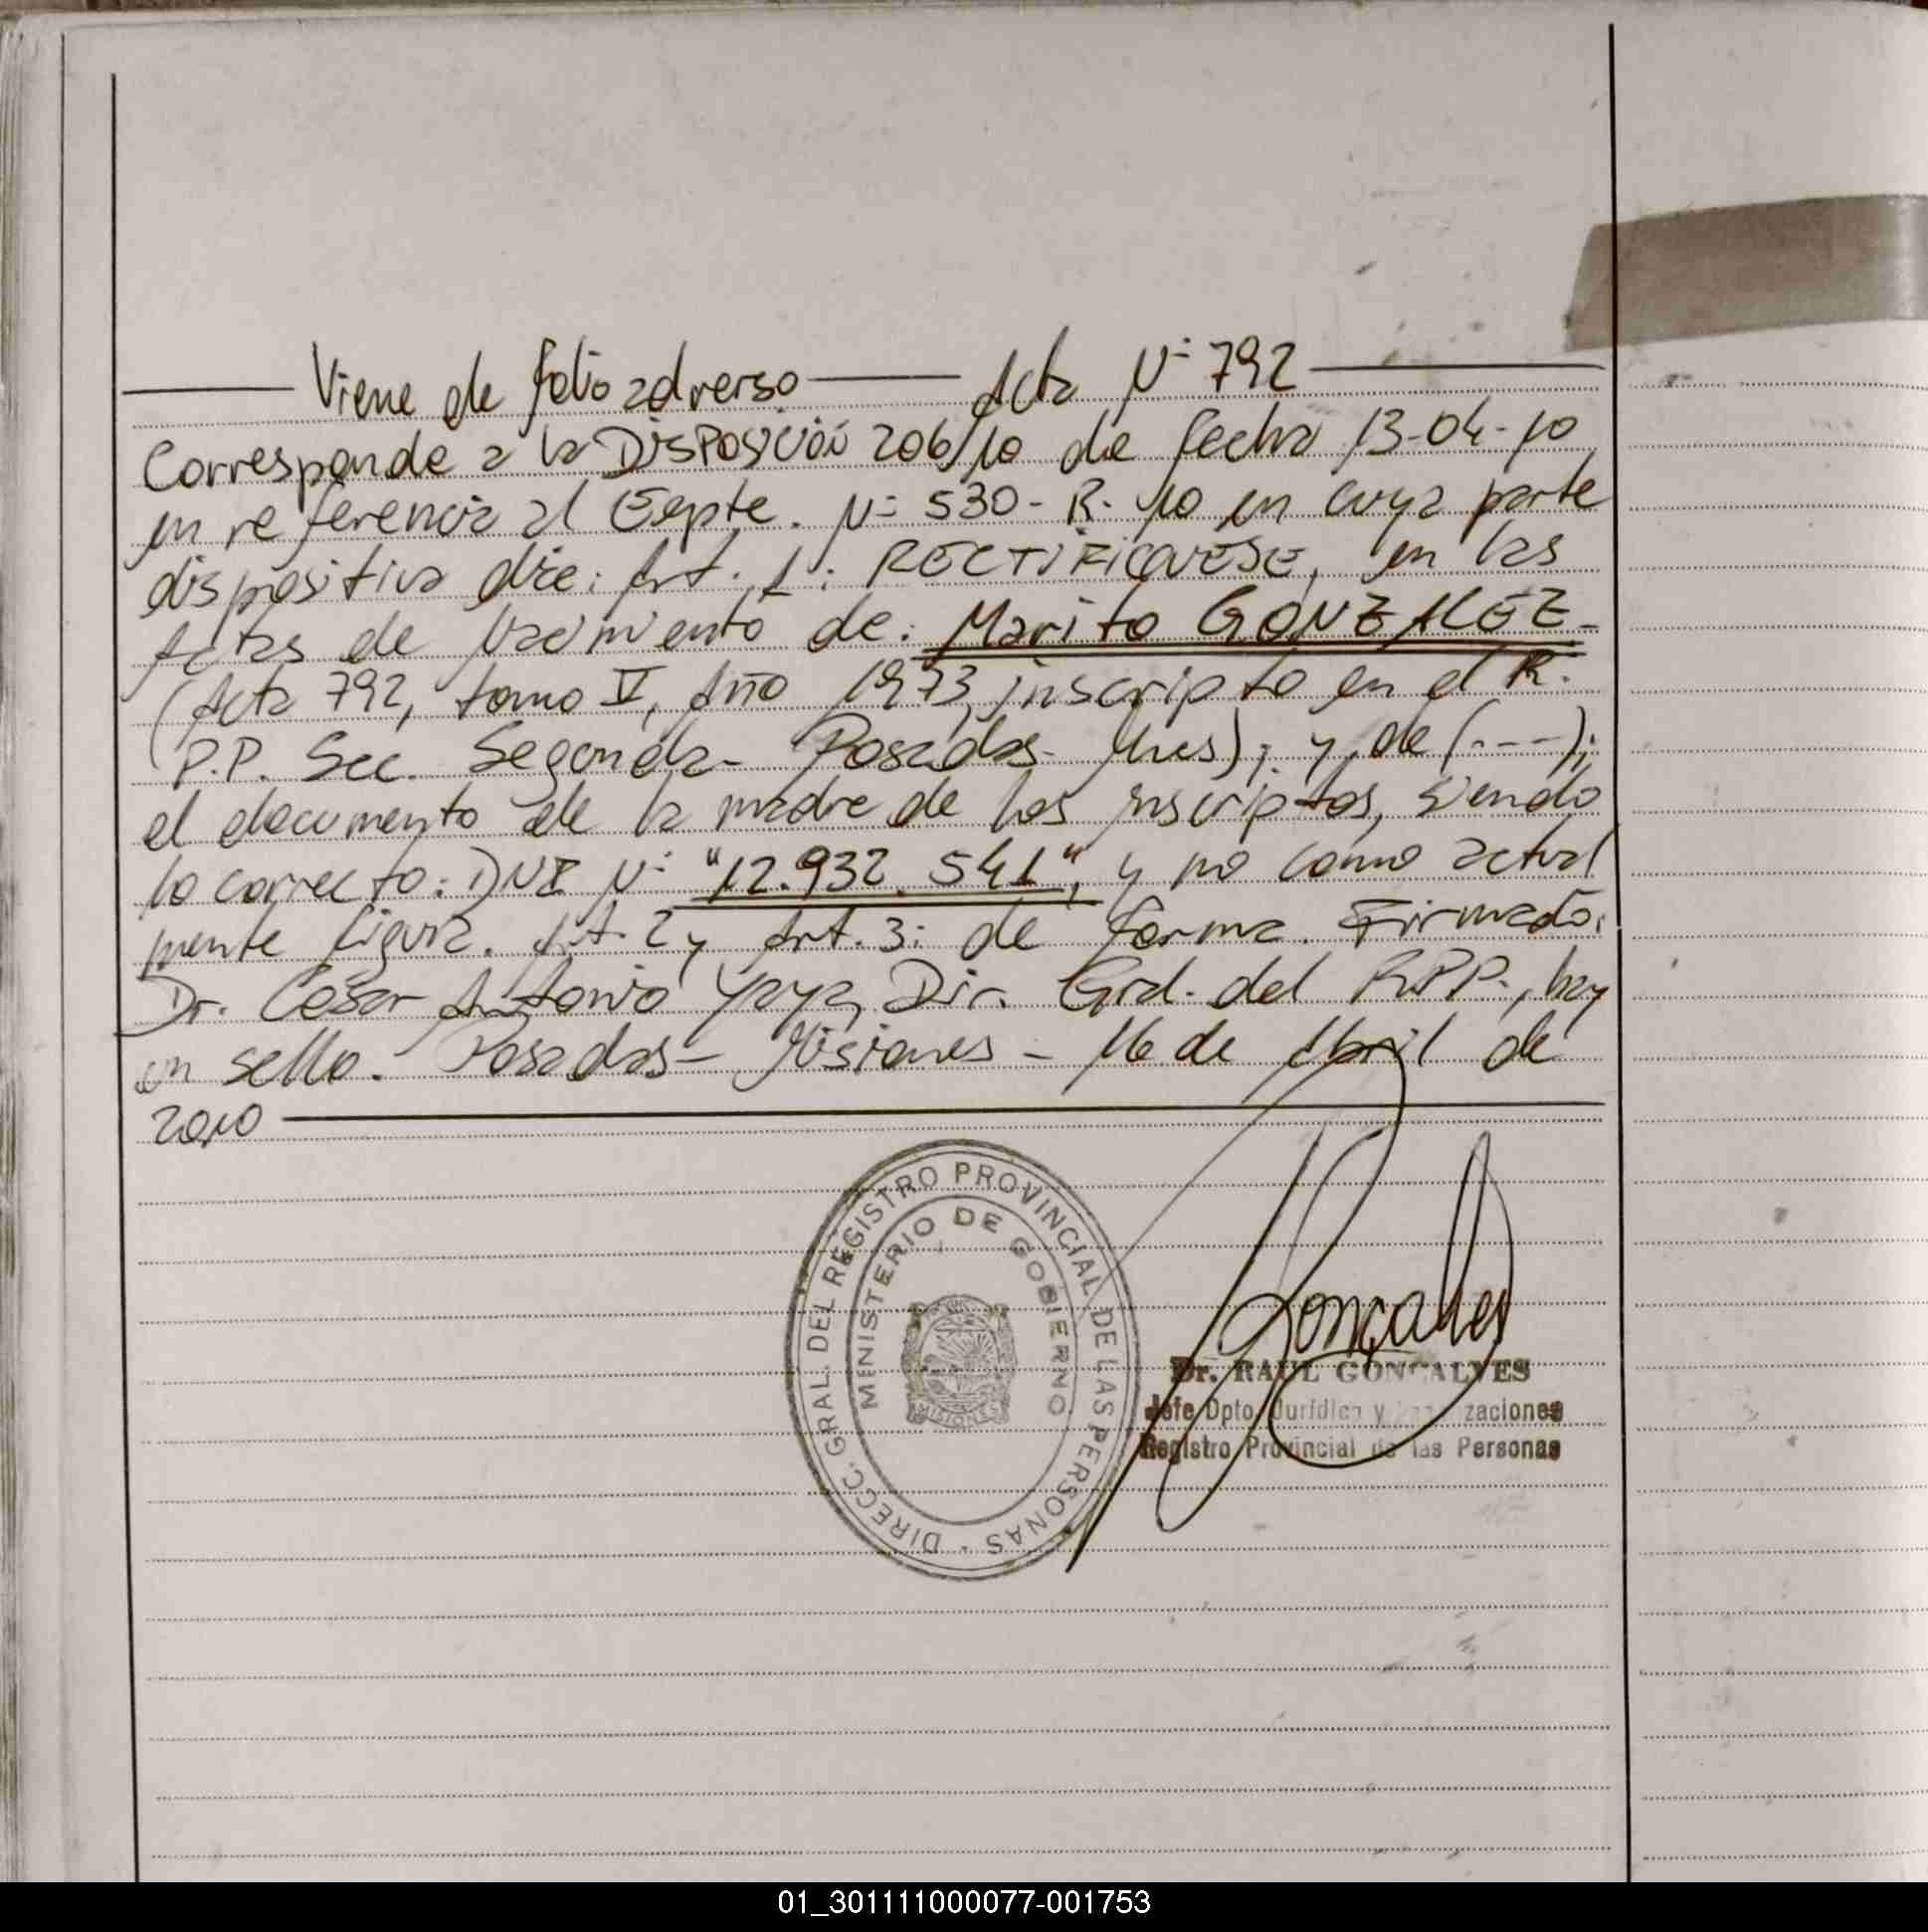 Viene de folio adverso — Acta N° 792
Corresponde a la DISPOSICIÓN 206/10 de fecha 13-04-10
en referencia al Expte. N° 530-R-10 en cuya parte
dispositiva dice: Art. 1: RECTIFIQUESE, en las
Actas de Nacimiento de: Marito GONZALEZ-
(Acta 792, tomo V, Año 1973, inscripto en el R.
P.P. Sec. Segunda- Posadas- Mnes); y de (---);
el documento de la madre de los inscriptos, siendo
lo correcto: DNI N° "12.932.541", y no como actual
mente figura. Art. 2 y Art. 3: de forma. Firmado:
Dr. Cesar Antonio Yaya, Dir. Gral. del RPP., hay
un sello. Posadas- Misiones - 16 de Abril de
2010
DIRECC. GRAL. DEL REGISTRO PROVINCIAL DE LAS PERSONAS
MINISTERIO DE GOBIERNO
MISIONES
Gonçalves
Dr. RAUL GONÇALVES
Jefe Dpto. Jurídico y
Registro Provincial de las Personas
01_301111000077-001753